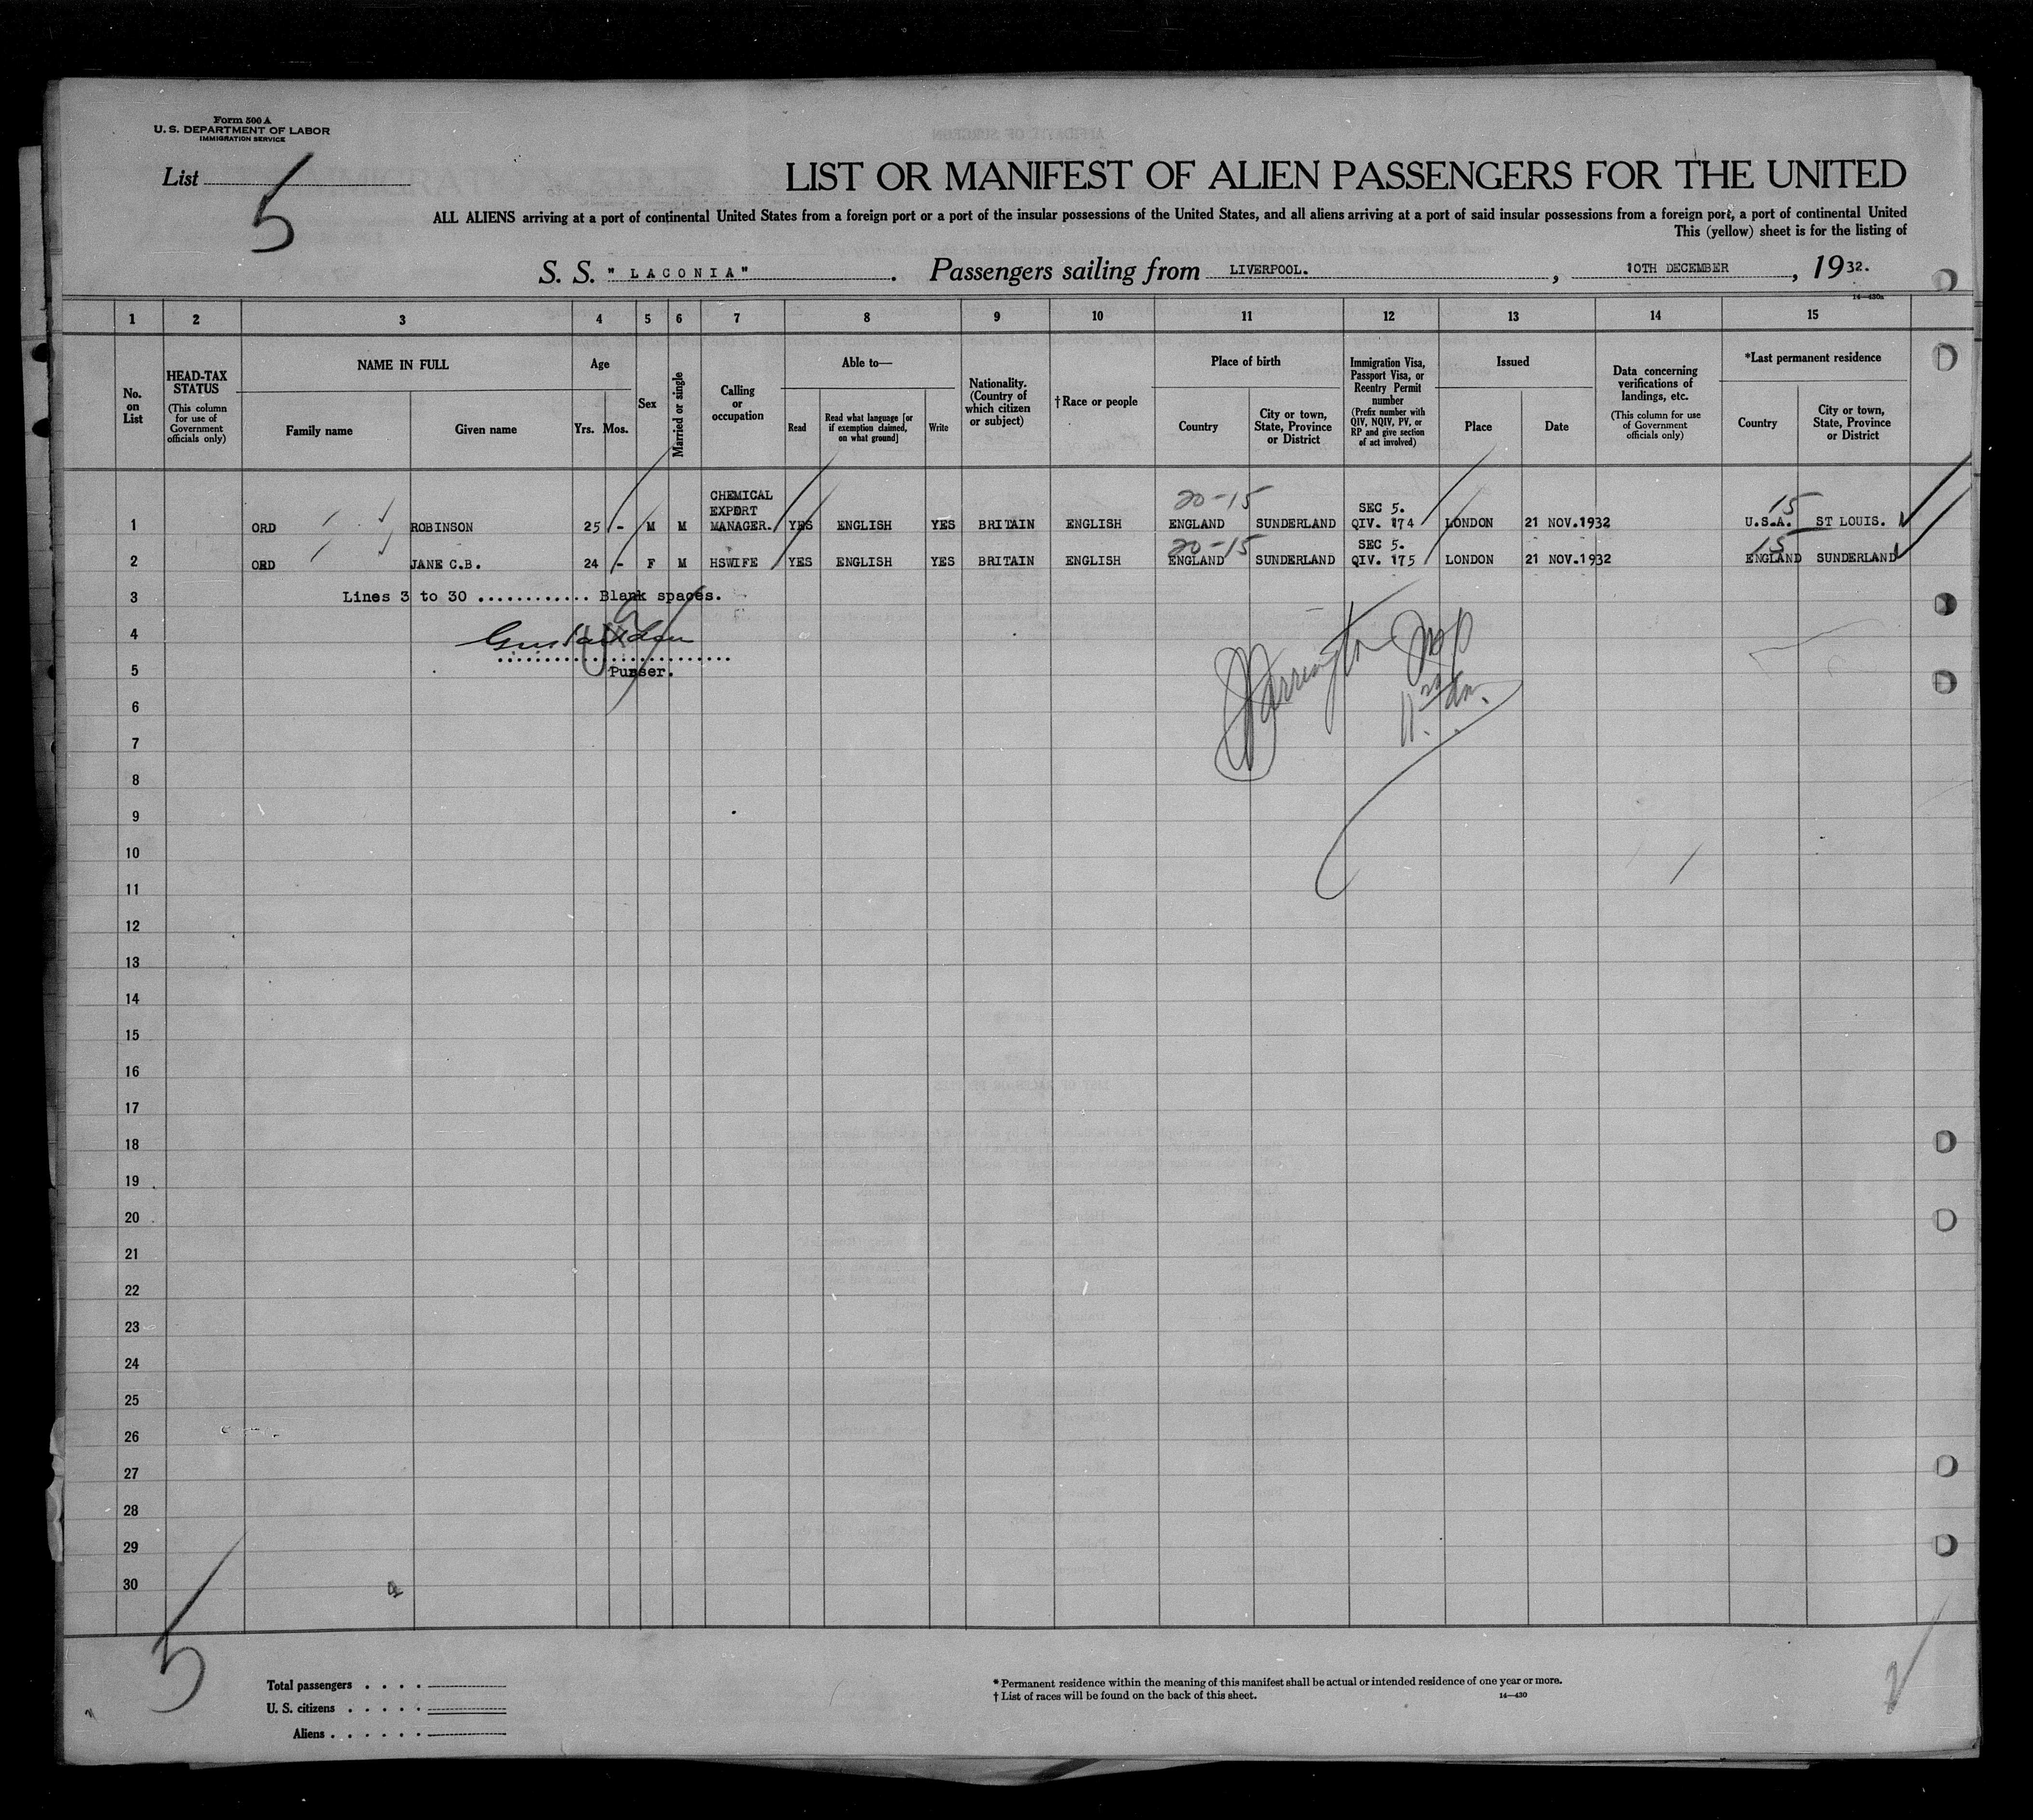 Form 500 A
U. S. DEPARTMENT OF LABOR
IMMIGRATION SERVICE
List 5
LIST OR MANIFEST OF ALIEN PASSENGERS FOR THE UNITED
ALL ALIENS arriving at a port of continental United States from a foreign port or a port of the insular possessions of the United States, and all aliens arriving at a port of said insular possessions from a foreign port, a port of continental United
This (yellow) sheet is for the listing of
S. S. "LACONIA". Passengers sailing from LIVERPOOL., 10TH DECEMBER, 1932.
14—430a
1 2 3 4 5 6 7 8 9 10 11 12 13 14 15
No. on List
HEAD-TAX STATUS
(This column for use of Government officials only)
NAME IN FULL
Family name
Given name
Age
Yrs. Mos.
Sex
Married or single
Calling or occupation
Able to—
Read
Read what language [or if exemption claimed, on what ground]
Write
Nationality. (Country of which citizen or subject)
†Race or people
Place of birth
Country
City or town, State, Province or District
Immigration Visa, Passport Visa, or Reentry Permit number
(Prefix number with QIV, NQIV, PV, or RP and give section of act involved)
Issued
Place
Date
Data concerning verifications of landings, etc.
(This column for use of Government officials only)
*Last permanent residence
Country
City or town, State, Province or District
1 ORD ROBINSON 25 - M M CHEMICAL EXPORT MANAGER. YES ENGLISH YES BRITAIN ENGLISH 20-15 ENGLAND SUNDERLAND SEC 5. QIV. 174 LONDON 21 NOV.1932 15 U.S.A. ST LOUIS.
2 ORD JANE C.B. 24 - F M HSWIFE YES ENGLISH YES BRITAIN ENGLISH 20-15 ENGLAND SUNDERLAND SEC 5. QIV. 175 LONDON 21 NOV.1932 15 ENGLAND SUNDERLAND
3 Lines 3 to 30 ............ Blank spaces.
4
5 Purser.
6
7
8
9
10
11
12
13
14
15
16
17
18
19
20
21
22
23
24
25
26
27
28
29
30
5
Total passengers . . . .
U. S. citizens . . . . .
Aliens . . . . . .
* Permanent residence within the meaning of this manifest shall be actual or intended residence of one year or more.
† List of races will be found on the back of this sheet.
14—430